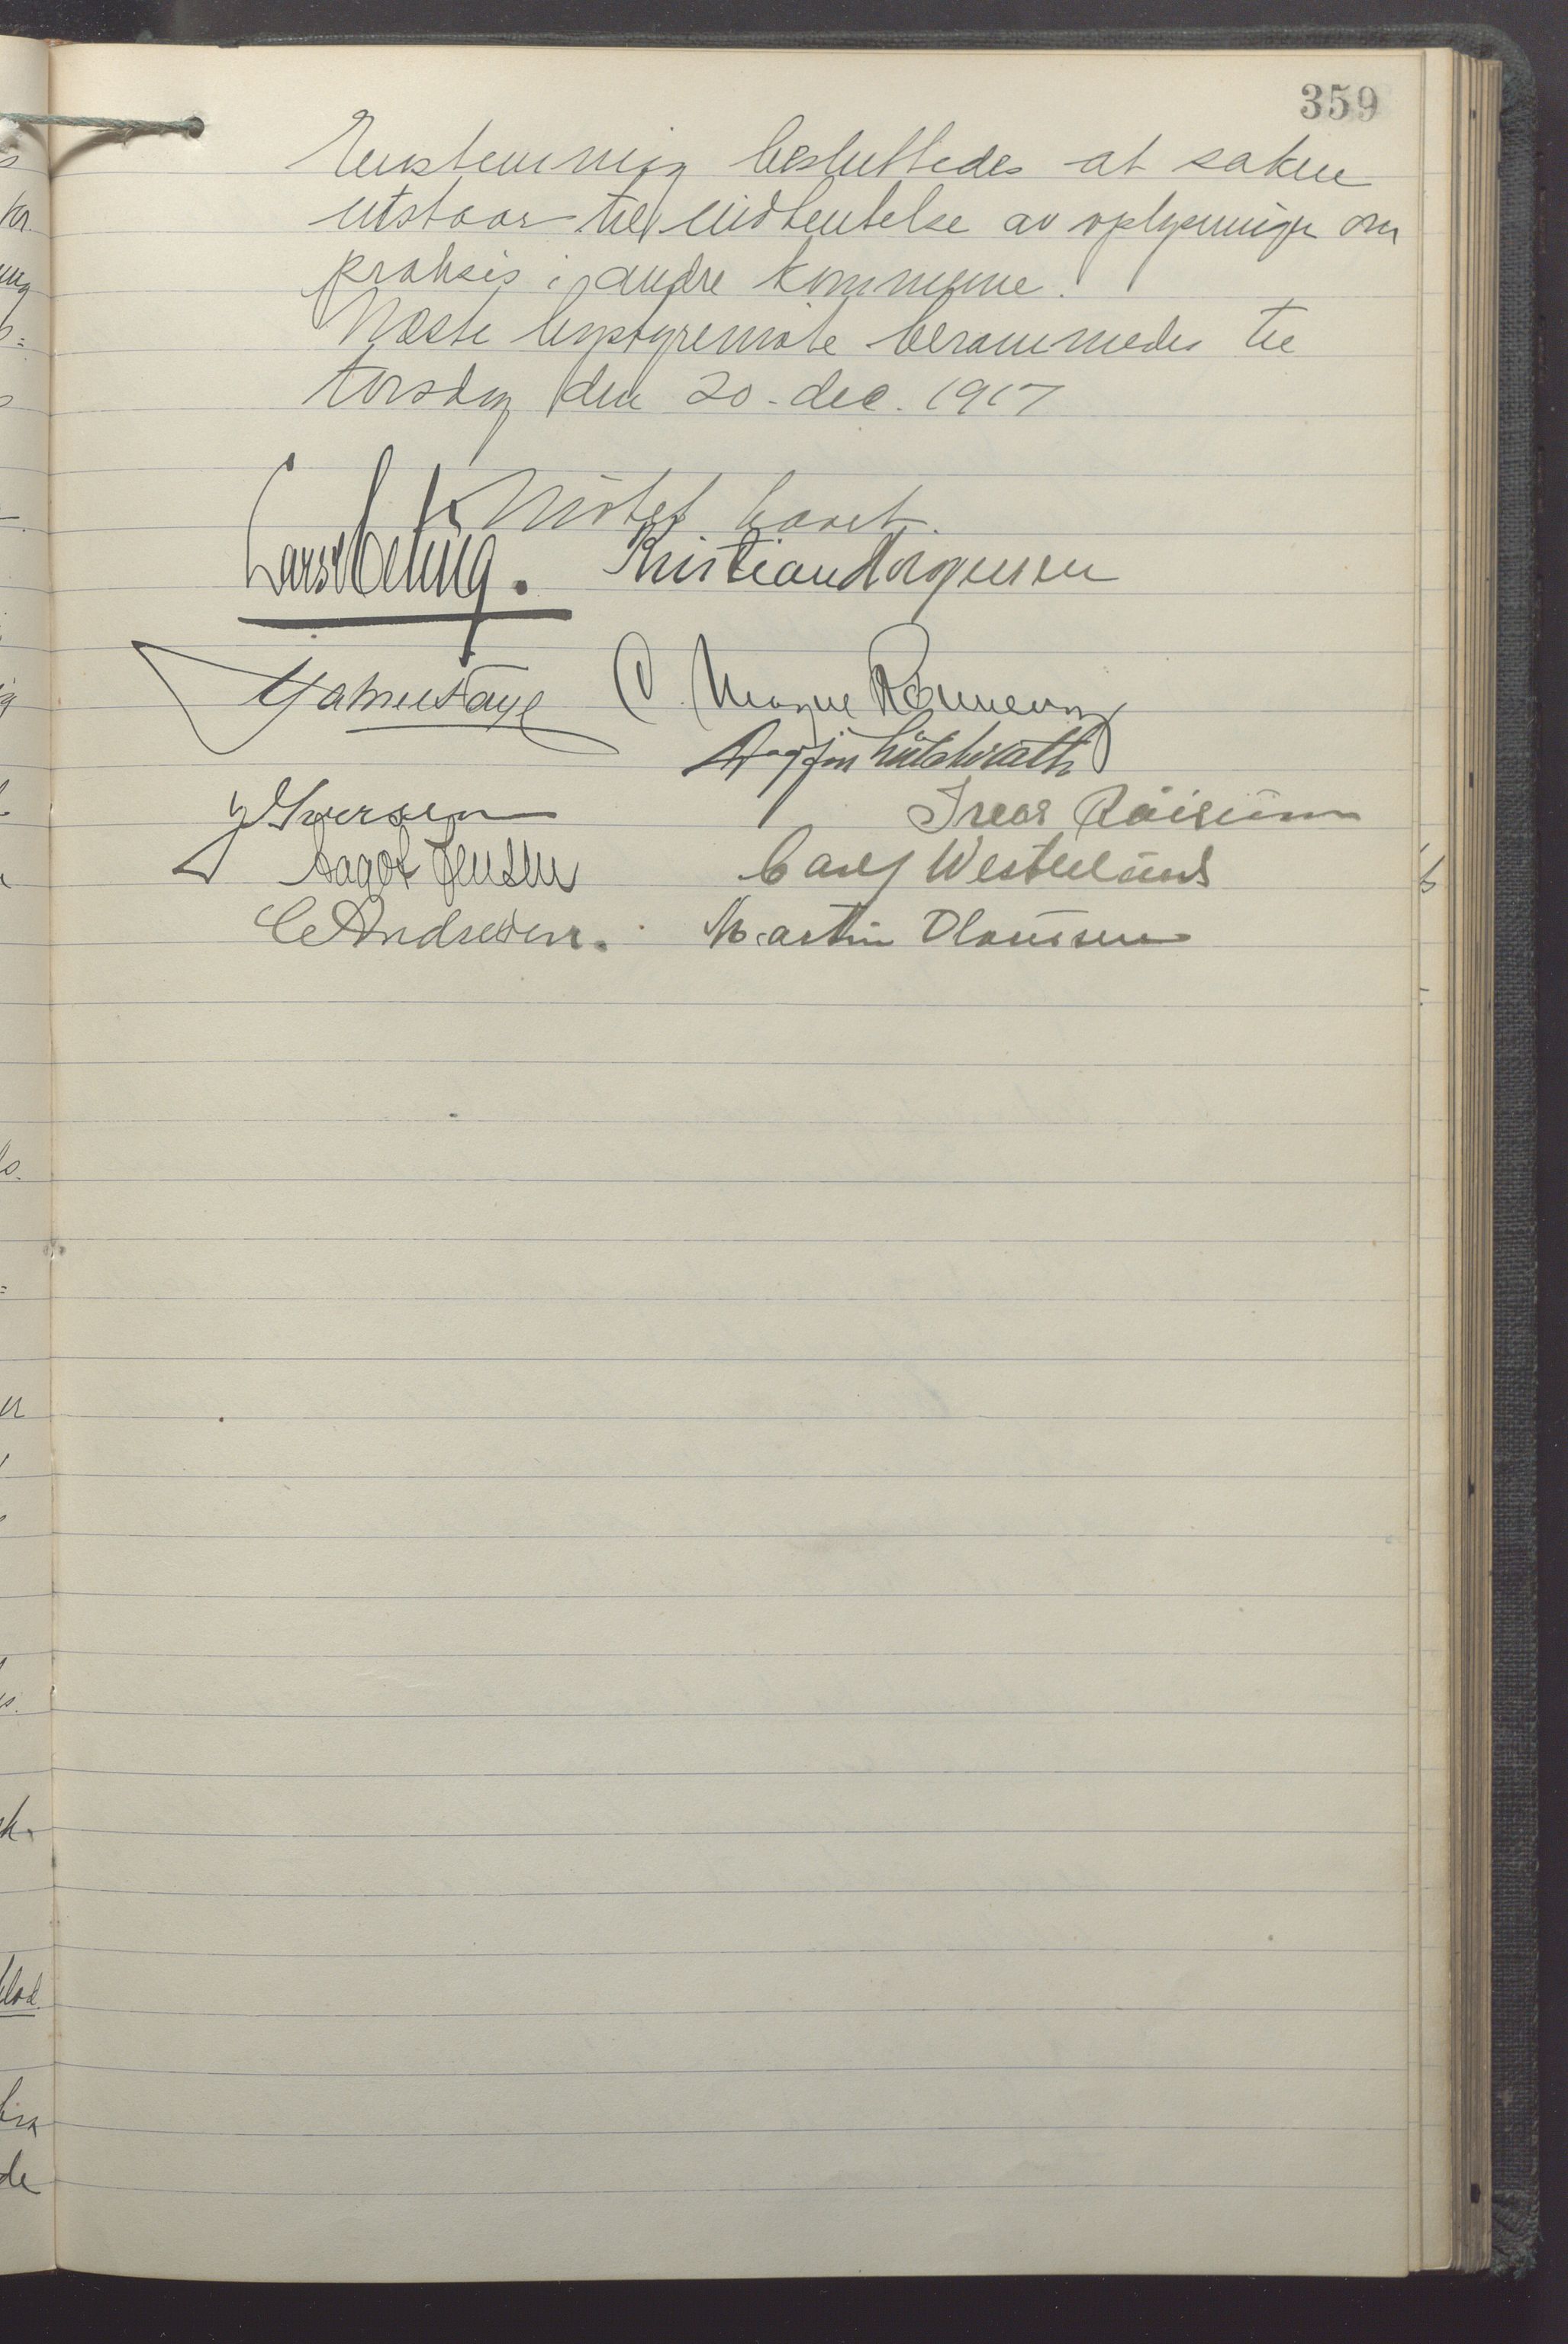 359
Enstemmig besluttedes at saken
utstaar til indhentelse av oplysninger om
praksis i andre kommune.
Næste bystyremøte berammedes til
torsdag den 20. dec. 1917
Møtet hævet.
Kristian Jørgensen
C. Magne Rønnevig
Dagfin
Iversen
Ivar
Aagot Jensen
Carl Westerlund
C Andresen.
Martin Olaussen